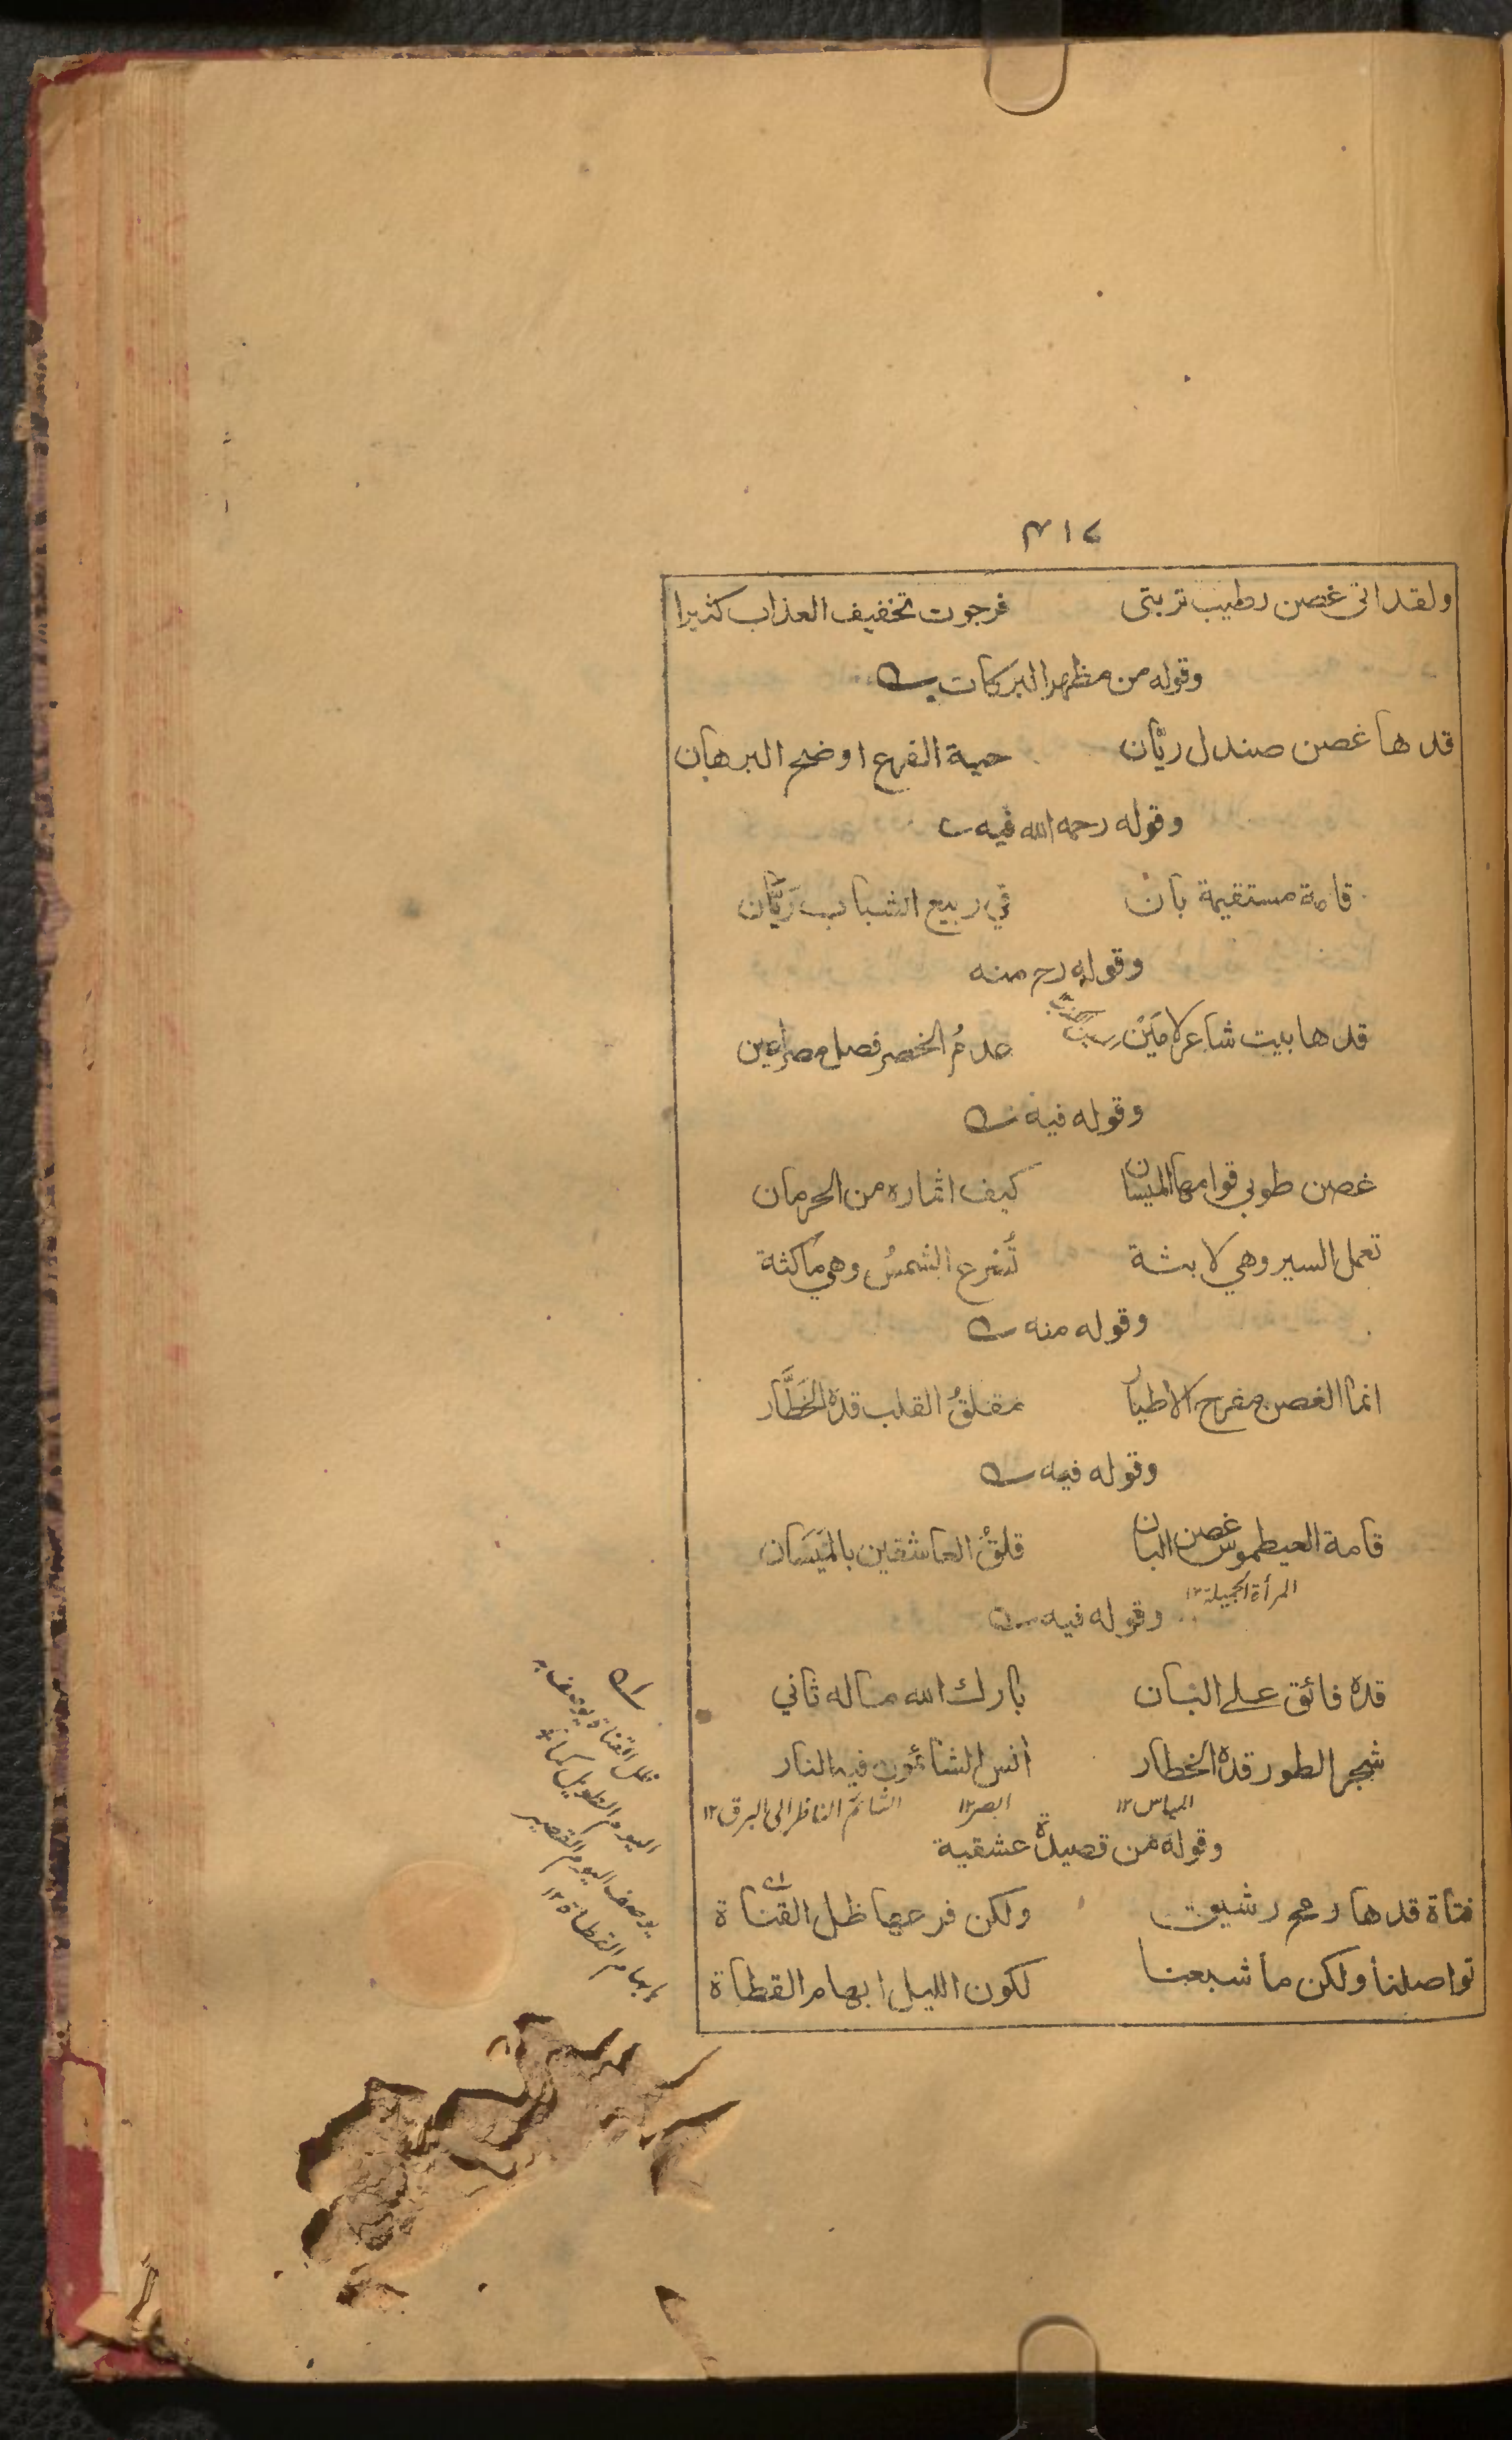 ۴۱۷
ولقد اتى غصن رطيب تربتى فرجوت تخفيف العذاب كثيرا
وقوله من مظهر البركات
قدها غصن صندل ريّان حية الفرع اوضح البرهان
وقوله رحمه الله فيه
قامة مستقيمة بان في ربيع الشباب رَيَّان
وقوله رح منه
قدها بيت شاعر لامَيْن عدمُ الخصر فصل مصراعين
وقوله فيه
غصن طوبي قوامها الميسان كيف اثماره من الحرمان
تعمل السير وهي لابثة تُسْرع الشمسُ وهي ماكثة
وقوله منه
انما الغصن مفرح الاطيار مقلقُ القلب قده الخَطَّار
وقوله فيه
قامة العيطموس غصن البان قلقُ العاشقين بالمَيَسَان
المرأة الجميلة ١٢
وقوله فيه
قده فائق على البان بارك الله ماله ثاني
شجر الطور قده الخطار آنس الشائمون فيه النار
المياس ١٢ ابصر ١٢ الشائم الناظر الى البرق ١٢
وقوله من قصيدة عشقية
فتاة قدها رمح رشيق ولكن فرعها ظل القناة
تواصلنا ولكن ما شبعنا لكون الليل ابهام القطاة
ظل القناة يوصف به
اليوم الطويل كما
يوصف اليوم القصير
بابهام القطاة ١٢